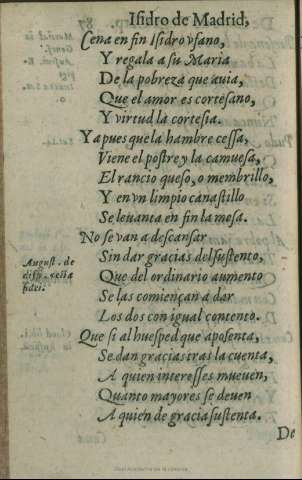 Isidro de Madrid,
Cena en fin Isidro vfano,
Y regala a su Maria
De la pobreza que auia,
Que el amor es cortesano,
Y virtud la cortesia.
Ya pues que la hambre cessa,
Viene el postre y la camuesa,
El rancio queso, o membrillo,
Y en vn limpio canastillo
Se leuanta en fin la mesa.
No se van a descansar
Sin dar gracias del sustento,
August. de
Que del ordinario aumento
fidei.
Se las comiençan a dar
Los dos con igual contento.
Que si al huesped que aposenta,
Se dan gracias tras la cuenta,
A quien interesses mueuen,
Quanto mayores se deuen
A quien de gracia sustenta.
De